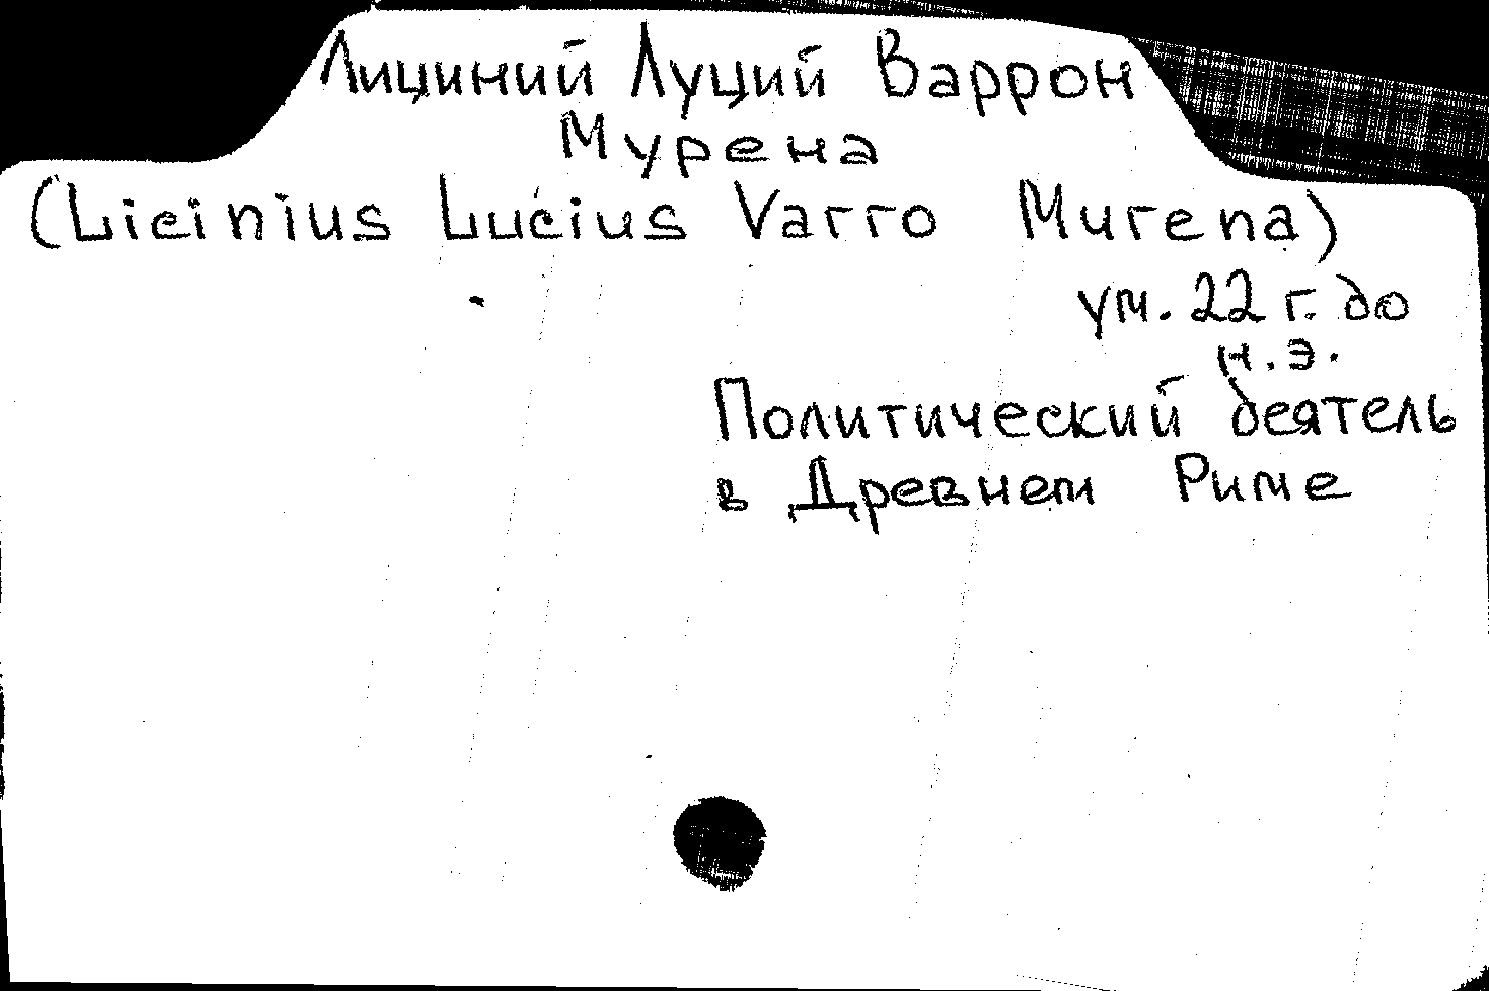 Лициний Луций Варрон
Мурена
(Licinius Lucius Varro Murena)
ум. 22 г. до
н.э.
Политический деятель
в Древнем Риме